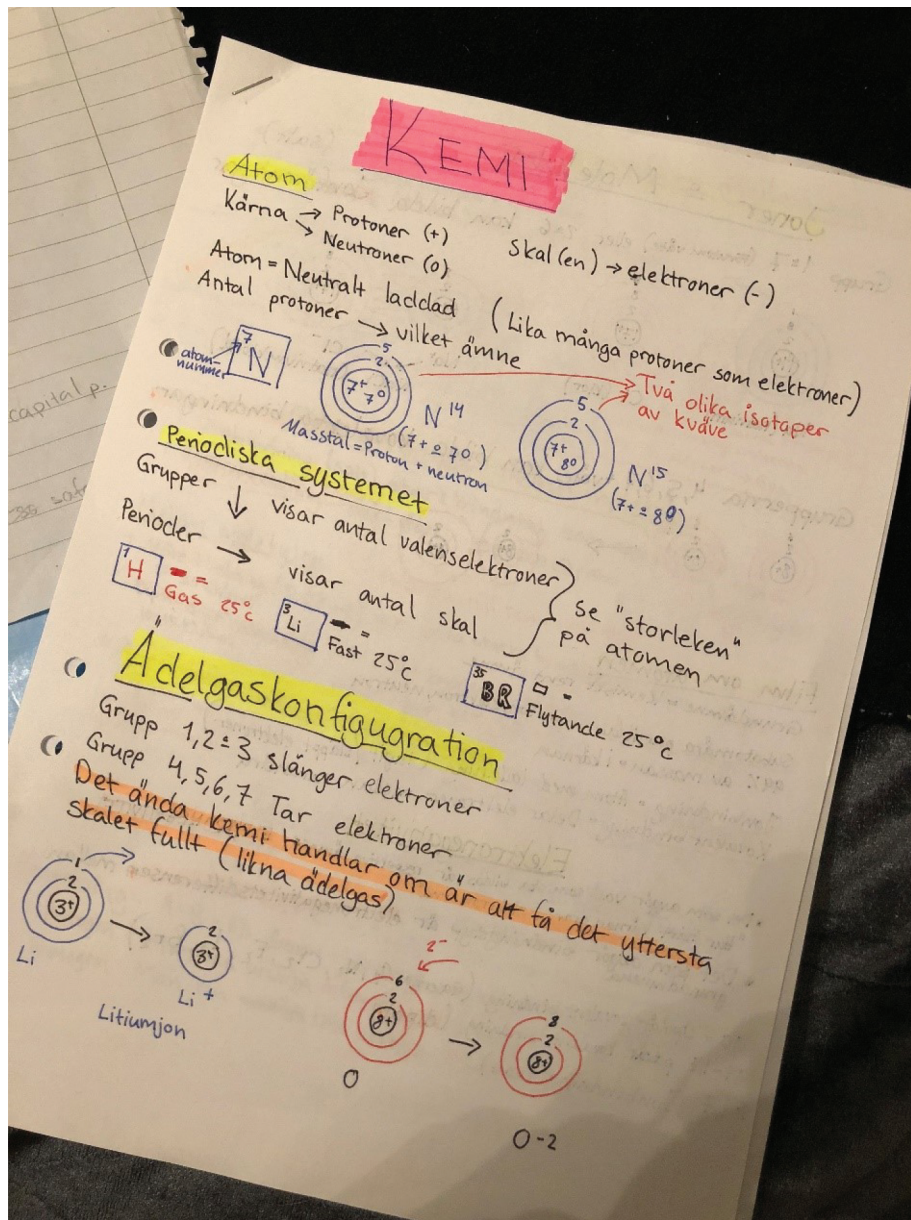 KEMI
Atom
Kärna → Protoner (+)
→ Neutroner (0)
Skal (en) → elektroner (-)
Atom = Neutralt laddad (Lika många protoner som elektroner)
Antal protoner → vilket ämne
7
N
atom-
nummer
5
2
7+
7⁰
N¹⁴
(7+ ± 7⁰)
Masstal = Proton + neutron
5
2
7+
8⁰
N¹⁵
(7+ ± 8⁰)
Två olika isotaper
av kväve
Periodiska systemet
Grupper ↓ visar antal valenselektroner
Perioder → visar antal skal
se "storleken"
på atomen
1
H
=
Gas 25°C
3
Li
=
Fast 25°C
35
BR
=
Flytande 25°C
Ädelgaskonfigugration
Grupp 1,2 ± 3 slänger elektroner
Grupp 4,5,6,7 Tar elektroner
Det ända kemi handlar om är att få det yttersta
skalet fullt (likna ädelgas)
1
2
3+
Li
→
2
3+
Li +
Litiumjon
2-
6
2
8+
O
→
8
2
8+
O-2
capital p.